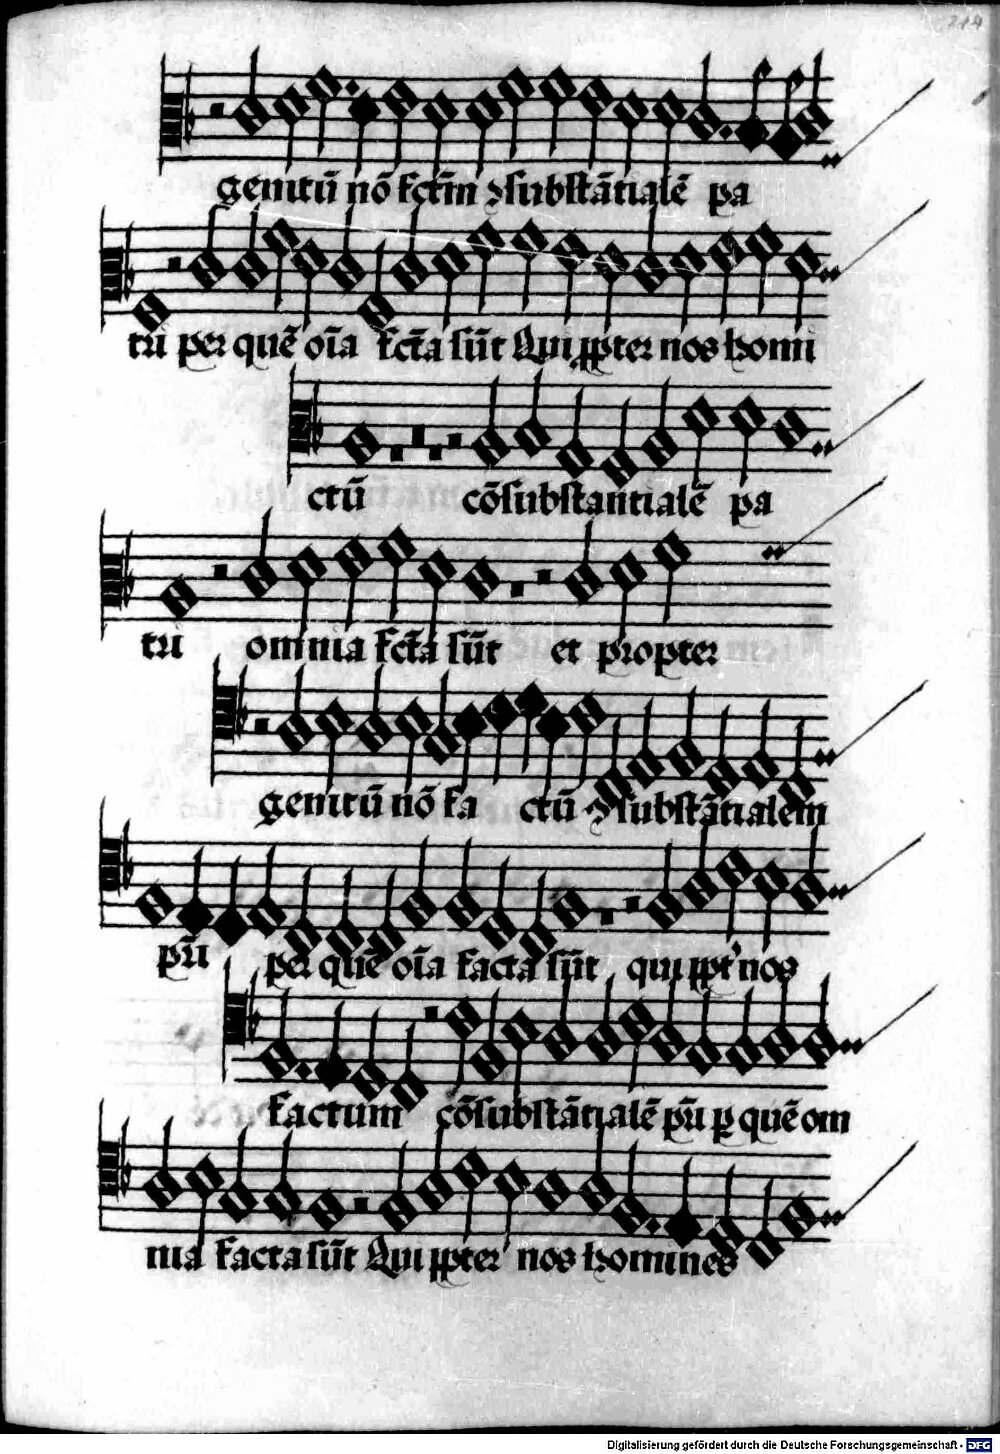 214
genitū nō fctm ꝯsubstātialē pa
tri per quē oīa fcta sūt Qui ꝓpter nos homi
ctū cōsubstantialē pa
tri omnia fcta sūt et propter
genitū nō fa ctū ꝯsubstātialem
pri per quē oīa facta sūt qui ꝓpt' nos
factum cōsubstātialē pri ꝑ quē om
nia facta sūt Qui ꝓpter nos homines
Digitalisierung gefördert durch die Deutsche Forschungsgemeinschaft - DFG